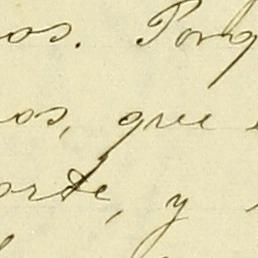 os. Porq
os, que e
orte, y